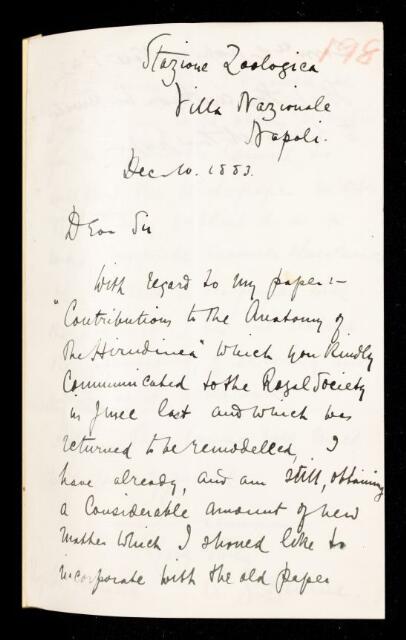 198
Stazione Zoologica
Villa Nazionale
Napoli.
Dec. 10. 1883.
Dear Sir
With regard to my paper:-
"Contributions to the Anatomy of
the Hirudinea" which you kindly
communicated to the Royal Society
in June last and which was
returned to be remodelled, I
have already, and am still, obtaining
a considerable amount of new
matter which I should like to
incorporate with the old paper